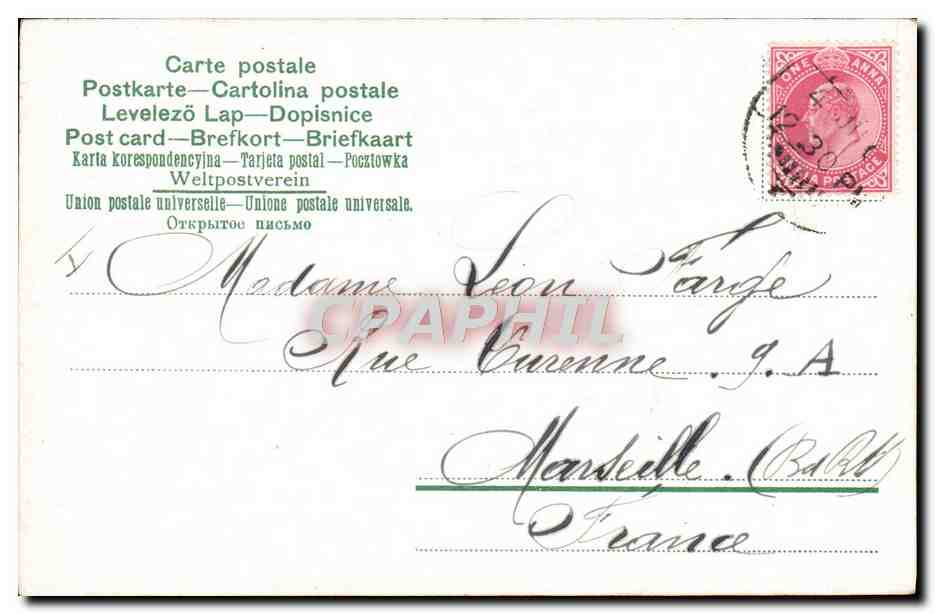 Carte postale
Postkarte—Cartolina postale
Levelezö Lap—Dopisnice
Post card—Brefkort—Briefkaart
Karta korespondencyjna—Tarjeta postal—Pocztowka
Weltpostverein
Union postale universelle—Unione postale universale.
Открытое письмо
ONE ANNA
INDIA POSTAGE
12 30
Madame Léon Farge
CPAPHIL
Rue Turenne . 9. A
Marseille. (BdRh)
France